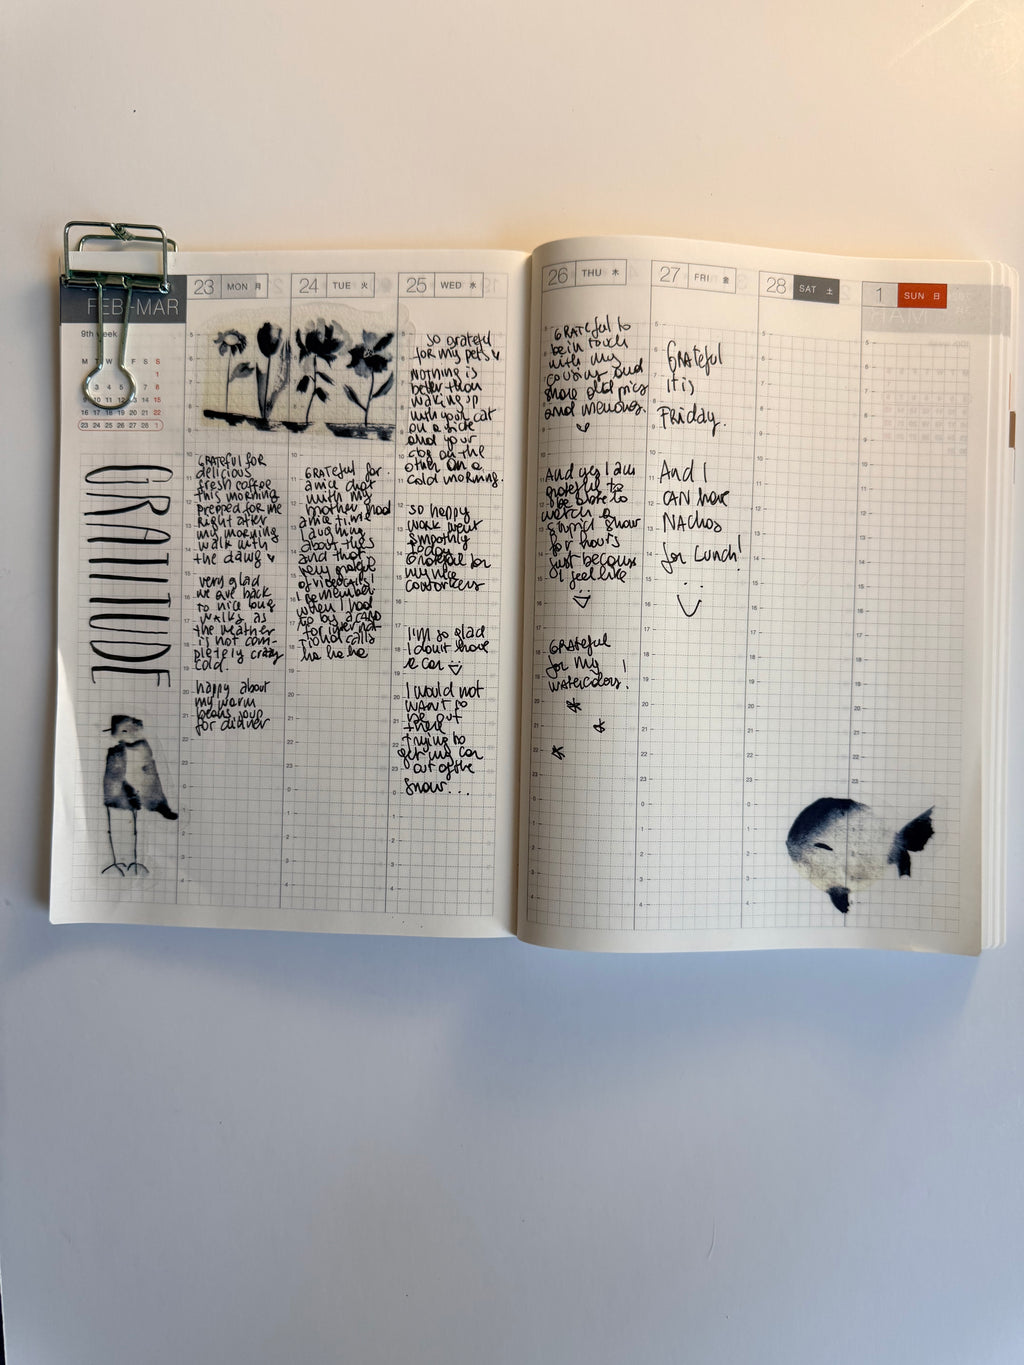 FEB-MAR
9th week
M T W T F S S
1
3 4 5 6 7 8
9 10 11 12 13 14 15
16 17 18 19 20 21 22
23 24 25 26 27 28 1
GRATITUDE
23 MON 月
GRATEFUL FOR
delicious
fresh coffee
this morning
prepped for me
right after
my morning
walk with
the dawg
very glad
we are back
to nice long
walks as
the weather
is not com-
pletely crazy
cold.
happy about
my warm
beans soup
for dinner
24 TUE 火
GRATEFUL for
a nice chat
with my
mother had
a nice time
laughing
about this
and that
very grateful
of videocalls!
I remember
when I had
to by a card
for inter nat-
tional calls
ha ha ha
25 WED 水
so grateful
for my pets
NOTHING is
better than
waking up
with your cat
on a side
and your
dog on the
other on a
cold morning.
so happy
work went
smoothly
today
Grateful for
my nice
coworkers
I'm so glad
I don't have
a car
I would not
WANT to
be out
there
trying to
get my car
out of the
snow...
26 THU 木
GRATEFUL to
be in touch
with my
cousins and
share old pics
and memories.
And yes I am
grateful to
be able to
watch a
stupid show
for hours
just because
I feel like
GRATEFUL
for my
WATERCOLORS!
27 FRI 金
GRATEFUL
it is
FRIDAY.
And I
CAN have
NACHOS
for Lunch!
28 SAT 土
1 SUN 日